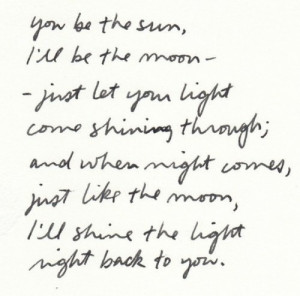 you be the sun,
I'll be the moon -
- just let your light
come shining through;
and when night comes,
just like the moon,
I'll shine the light
right back to you.